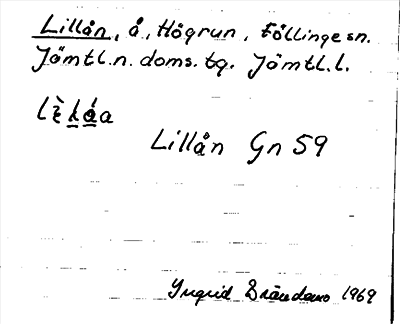 Lillån, å, Högrun, Föllinge sn.
Jämtl. n. doms. tg. Jämtl. l.
Lillån Gn 59
Ingrid 1969